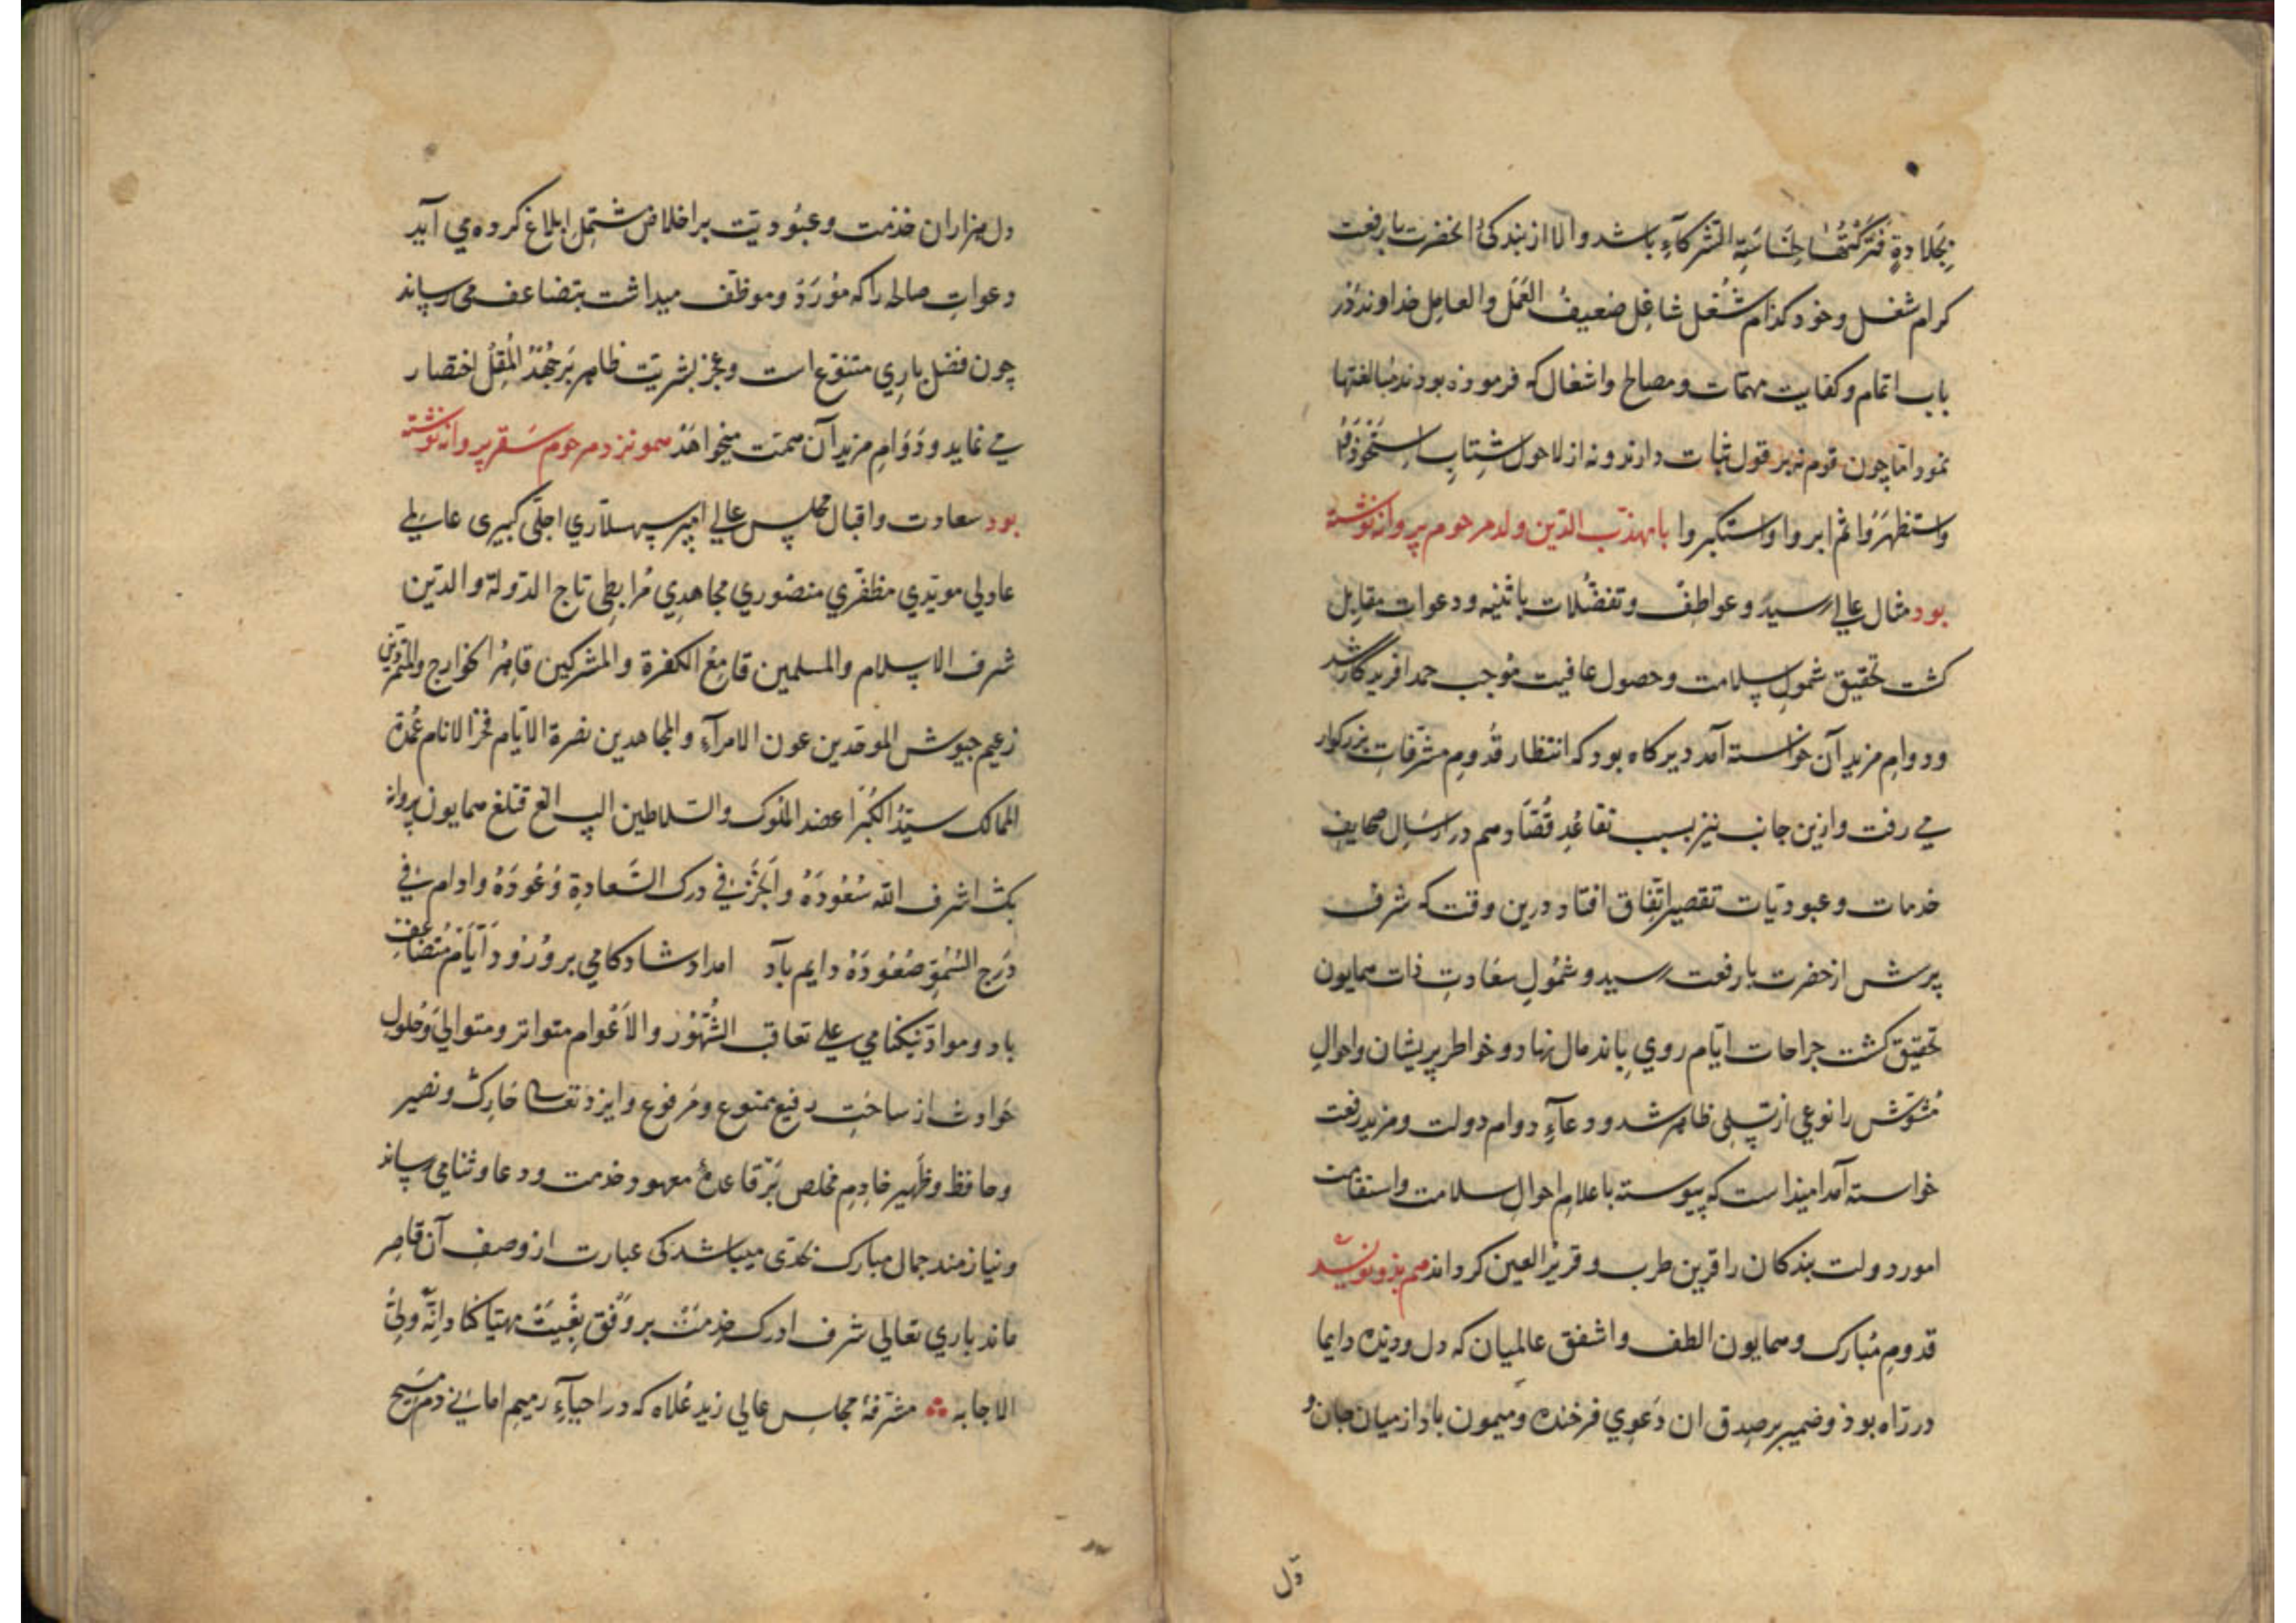 بجلادة فتركتها لخناسة الشركآء باشد والا از بندكی انحضرت بارفعت
كرام شغل وخود كدام شغل شاغل ضعیف العمل والعامل خداوند در
باب اتمام وكفایت مهمات ومصالح واشغال كه فرموده بودند مبالغتها
نمود اما چون قوم نه بر قول ثبات دارند ونه از لاحول
واستظهروا ثم ابروا واستكبروا بامهذب الدین ولد مرحوم پروانه نوشته
بود مثال عالی رسید وعواطف وتفضلات باثنیه ودعوات مقابل
كشت تحقیق شمول سلامت وحصول عافیت موجب حمد افریدگار شد
ودوام مزید آن خواسته آمد دیر كاه بود كه انتظار قدوم مشرفات بزركوار
می رفت وازین جانب نیز بسبب تقاعد قصاد هم در ارسال صحایف
خدمات وعبودیات تقصیر اتفاق افتاد درین وقت كه شرف
پرسش از حضرت بارفعت رسید وشمول سعادت ذات همایون
تحقیق كشت جراحات ایام روی باندمال نهاد وخواطر پریشان واحوال
مشوش را نوعی از تسلی ظاهر شد ودعآء دوام دولت ومزید رفعت
خواسته آمد امیذ است كه پیوسته باعلام احوال سلامت واستقامت
امور دولت بندكان را قرین طرب وقریر العین كرداند هم بذو نویسد
قدوم مبارك وهمایون الطف واشفق عالمیان كه دل ودیده دایما
در راه بوذ وضمیر بر صدق ان دعوی فرخنده ومیمون باد از میان جان و
دل
دل هزاران خذمت وعبودیت بر اخلاص مشتمل ابلاغ كرده می آید
دعوات صالحه را كه مورد وموظف میداشت بتضاعف می رساند
چون فضل باری متنوع است وعجز بشریت ظاهر بر جهد المقل اختصار
می نماید ودوام مزید آن همت میخواهذ همو نزد مرحوم سنقر پروانه نوشته
بود سعادت واقبال مجلس عالی امیر سپهسلاری اجلی كبیری عالمی
عادلی مویدی مظفری منصوری مجاهدی مرابطی تاج الدولة والدین
شرف الاسلام والمسلمین قامع الكفرة والمشركین قاهر الخوارج والمتمردین
زعیم جیوش الموحدین عون الامرآء والمجاهدین نصرة الایام فخر الانام عمدة
الممالك سید الكبرا عضد الملوك والسلاطین الپ الغ قتلغ همایون پروانه
بك اشرف الله سعوده وانجز فی درك السعادة وعوده وادام فی
درج السمو صعوده دایم باد امداد شادكامی بروز وایام متضاعف
باد ومواد نیكنامی علی تعاقب الشهور والاعوام متواتر ومتوالی وحلول
حوادث از ساحت رفیع ممنوع ومرفوع وایزد تعالی حارث ونصیر
وحافظ وظهیر خادم مخلص بر قاعده معهود خذمت ودعا وثنا می رساند
ونیازمند جمال مبارك بحدی میباشد كی عبارت از وصف آن قاصر
ماند باری تعالی شرف ادراك خدمت بر وفق بغیت مهیا كناد انه ولی
الاجابه مشرفهٔ مجلس عالی زید علاه كه در احیآء رمیم امانی دم مسیح